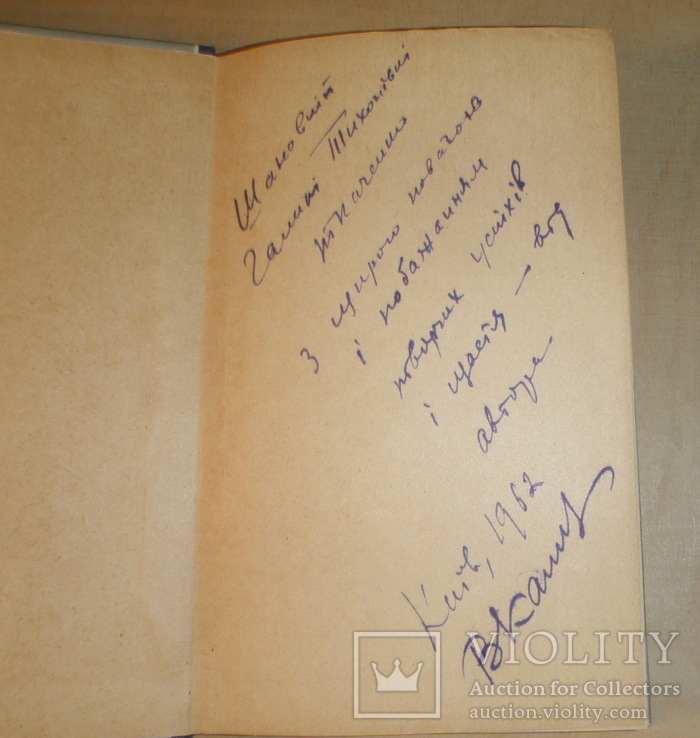 Шановній
Галині Тихонівні
Ткаченко
З щирою повагою
і побажанням
творчих успіхів
і щастя — від
автора
Київ, 1962
VIOLITY
Auction for Collectors
auction.violity.com